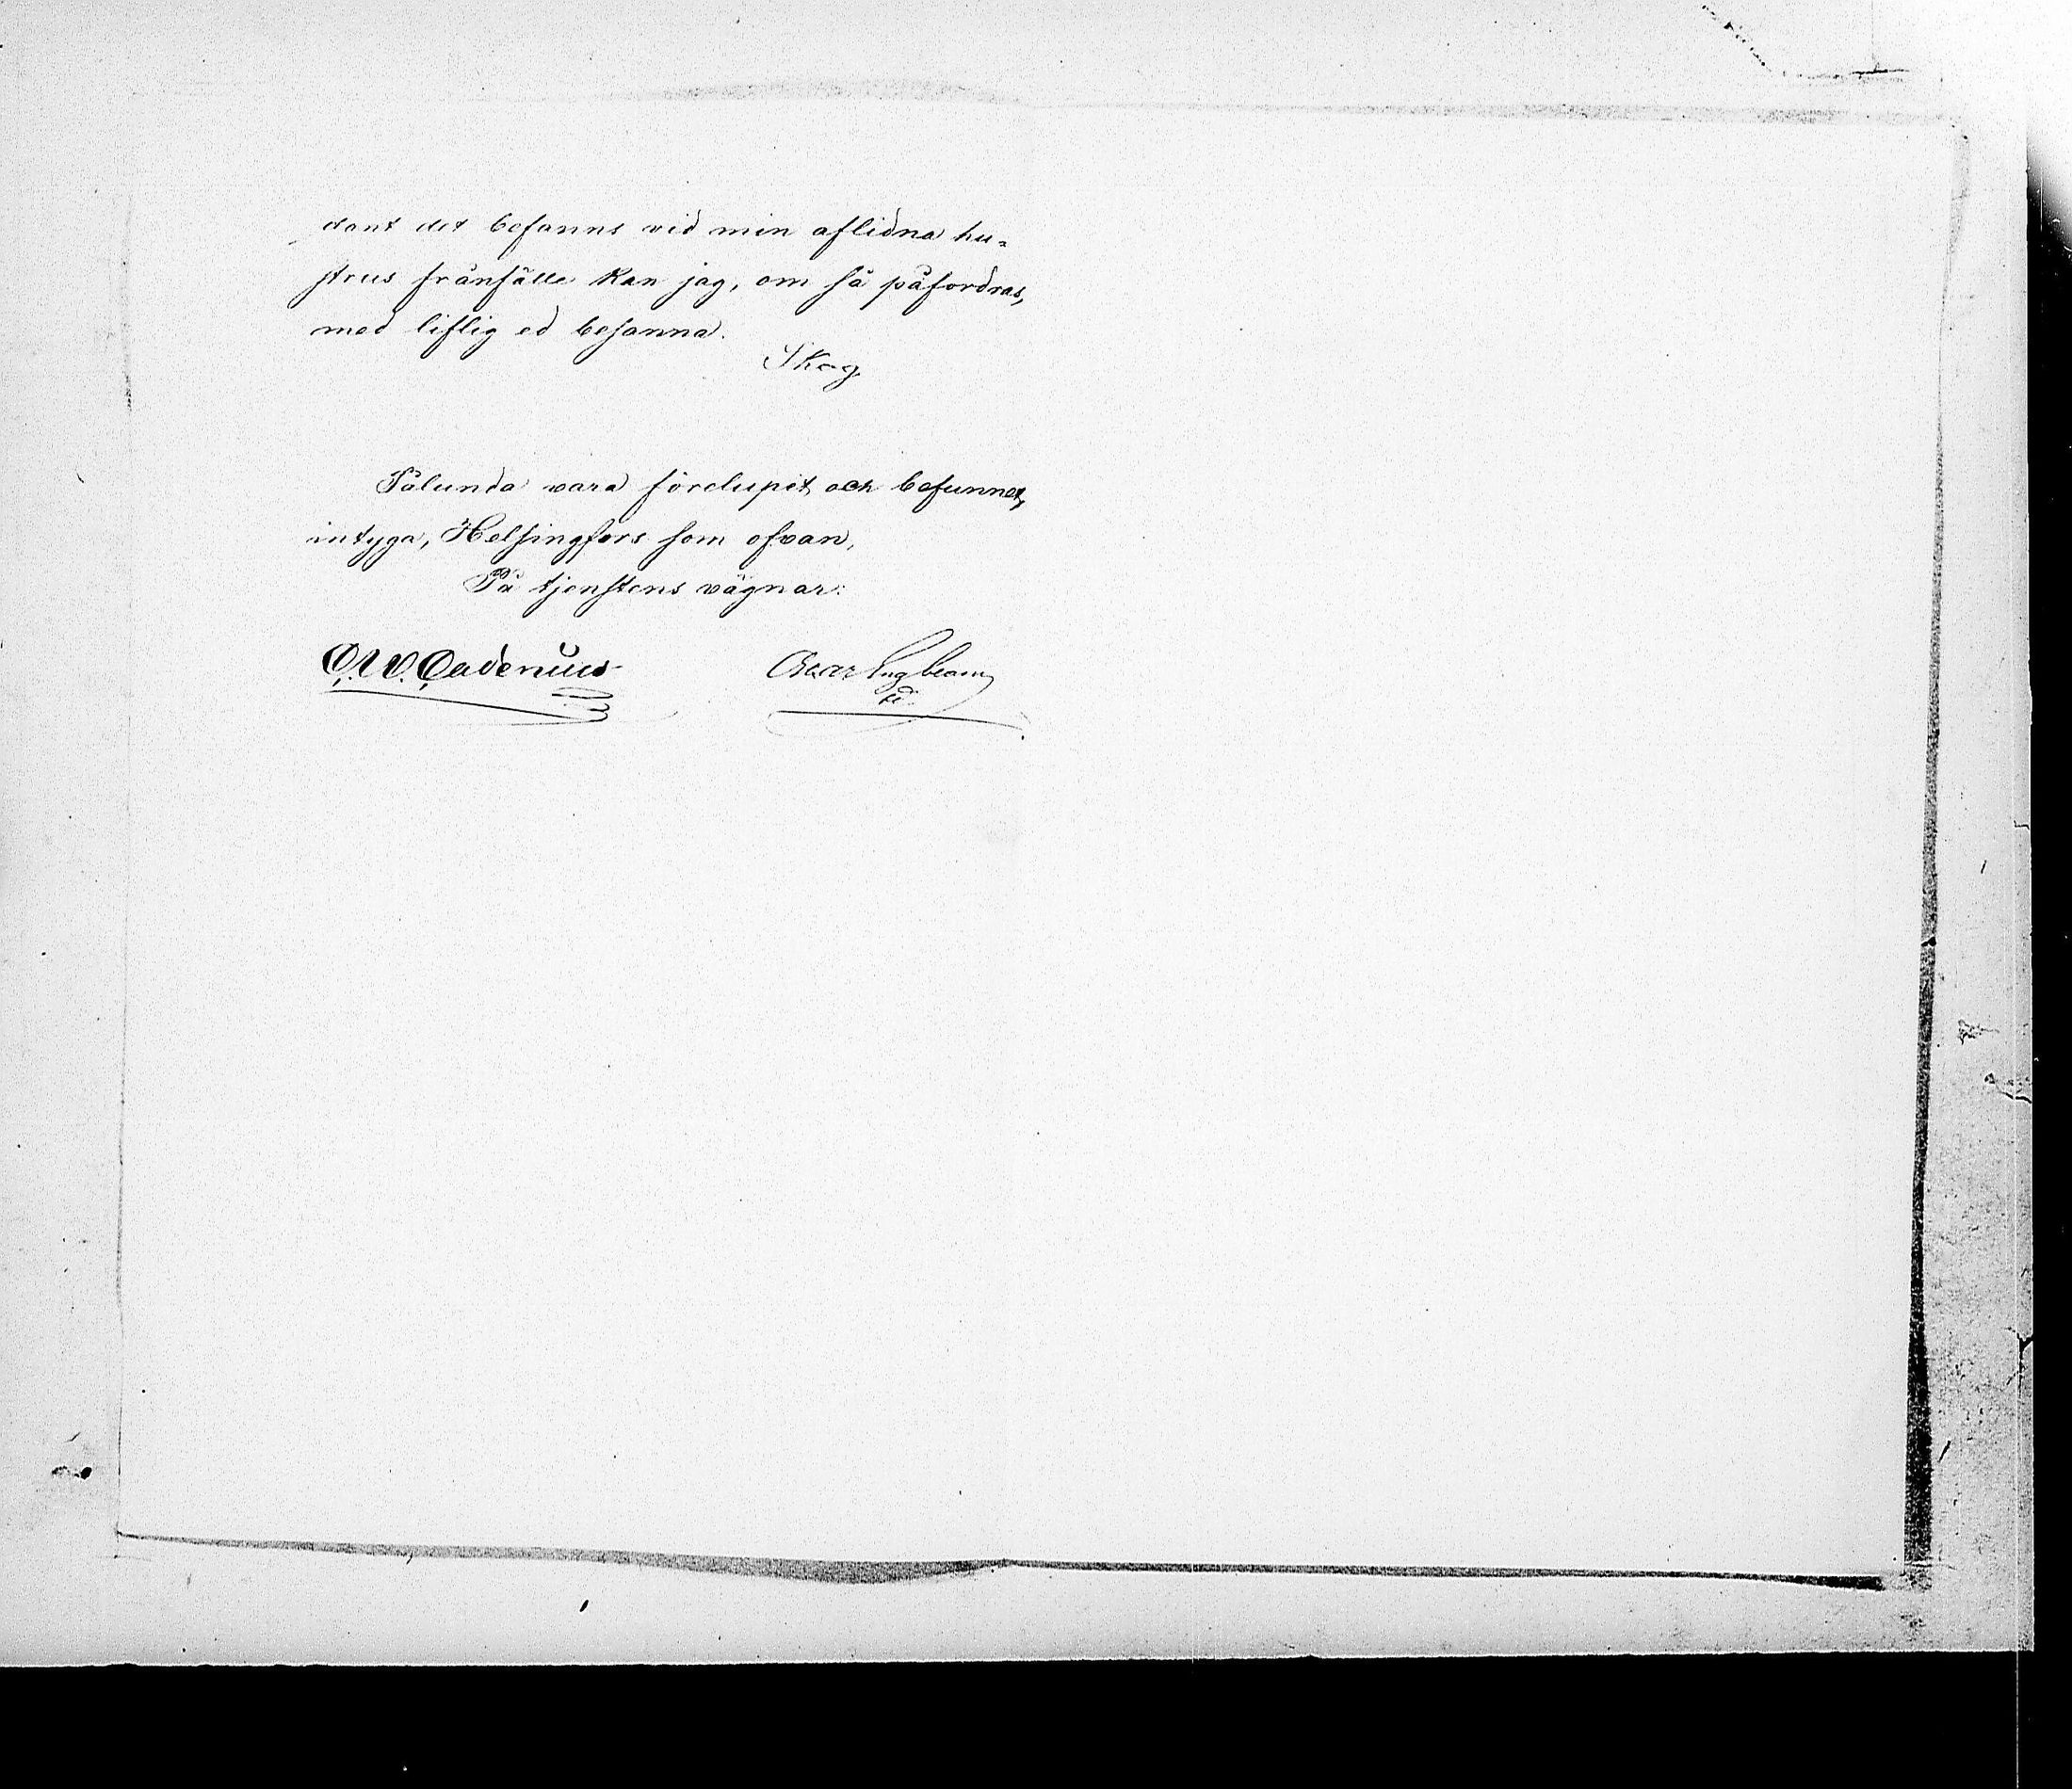 dant det befanns vid min aflidna hu-
strus frånfälle kan jag, om så påfordras,
med liflig ed besanna.
Skog
Sålunda vara förelupit och befunnet,
intyga, Helsingfors som ofvan,
På tjenstens vägnar:
C. W. Cadenius
Oscar Engblom